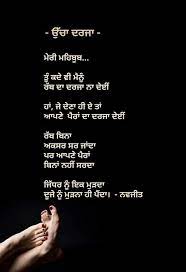 - ਉੱਚਾ ਦਰਜਾ -
ਮੇਰੀ ਮਹਿਬੂਬ...
ਤੂੰ ਕਦੇ ਵੀ ਮੈਨੂੰ
ਰੱਬ ਦਾ ਦਰਜਾ ਨਾ ਦੇਈਂ
ਹਾਂ, ਜੇ ਦੇਣਾ ਹੀ ਏ ਤਾਂ
ਆਪਣੇ ਪੈਰਾਂ ਦਾ ਦਰਜਾ ਦੇਈਂ
ਰੱਬ ਬਿਨਾ
ਅਕਸਰ ਸਰ ਜਾਂਦਾ
ਪਰ ਆਪਣੇ ਪੈਰਾਂ
ਬਿਨਾਂ ਨਹੀਂ ਸਰਦਾ
ਜਿੱਧਰ ਨੂੰ ਇਕ ਮੁੜਦਾ
ਦੂਜੇ ਨੂੰ ਮੁੜਨਾ ਹੀ ਪੈਂਦਾ। - ਨਵਜੀਤ